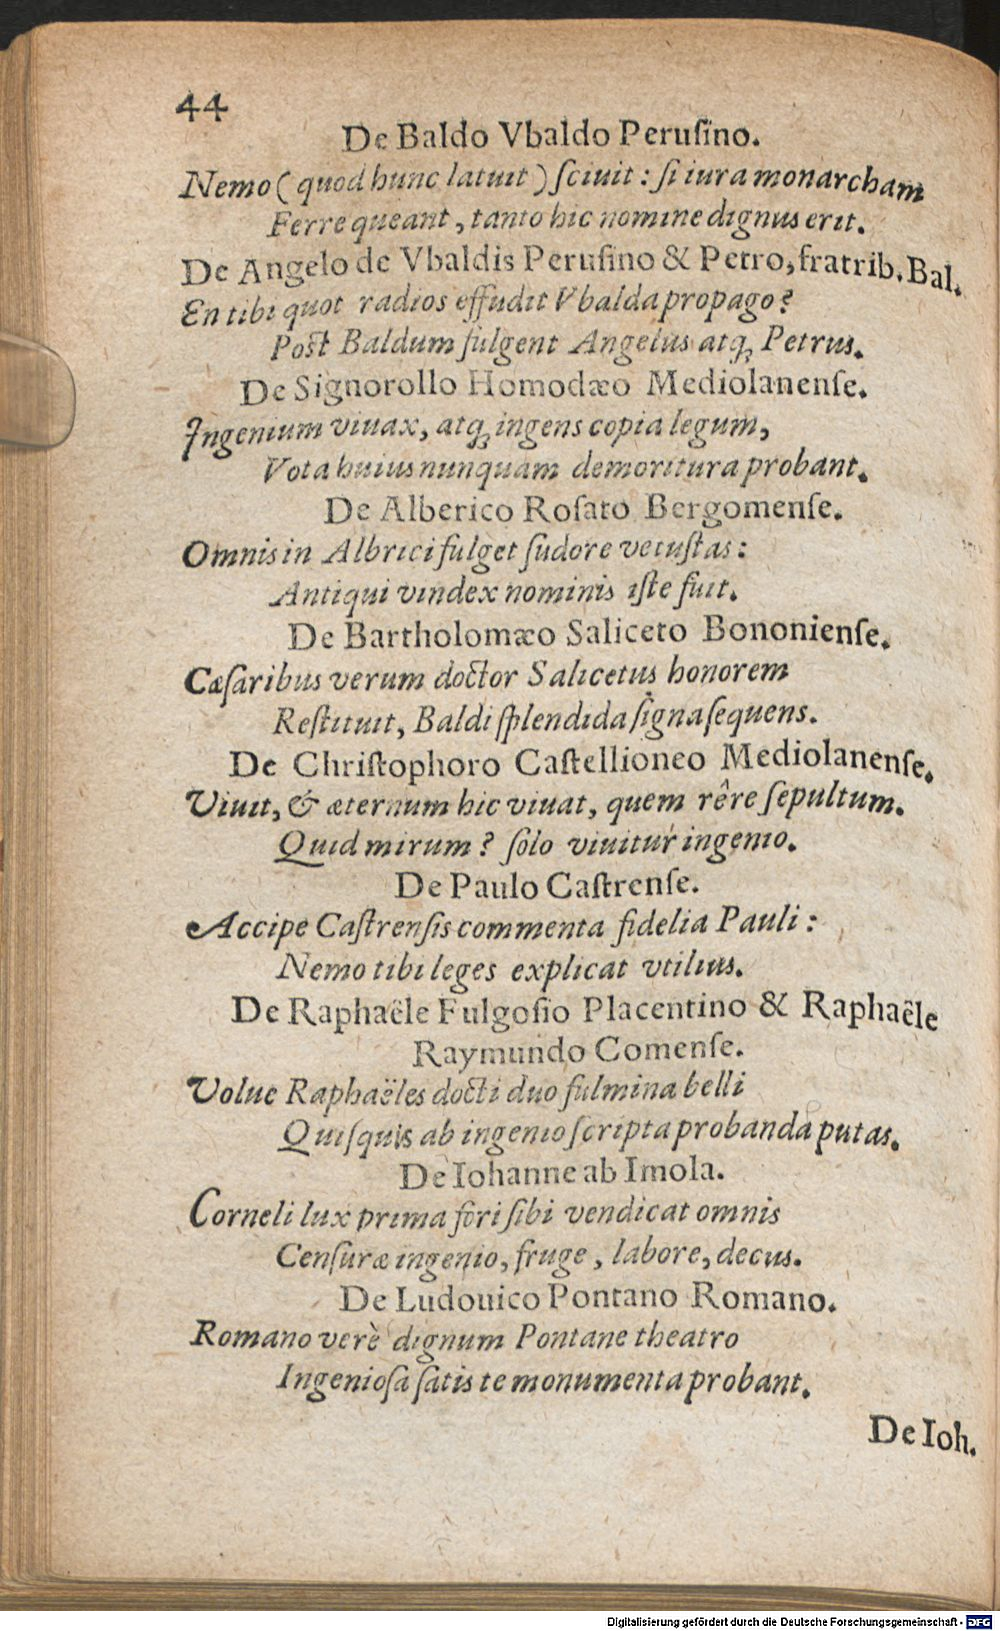 44
De Baldo Vbaldo Peruſino.
Nemo ( quod hunc latuit ) ſciuit : ſi iura monarcham
Ferre queant, tanto hic nomine dignus erit.
De Angelo de Vbaldis Peruſino & Petro, fratrib. Bal.
En tibi quot radios effudit Vbalda propago?
Poſt Baldum fulgent Angelus atq; Petrus.
De Signorollo Homodæo Mediolanenſe.
Ingenium viuax, atq; ingens copia legum,
Vota huius nunquam demoritura probant.
De Alberico Roſato Bergomenſe.
Omnis in Albrici fulget ſudore vetuſtas:
Antiqui vindex nominis iſte fuit.
De Bartholomæo Saliceto Bononienſe.
Cæſaribus verum doctor Salicetus honorem
Reſtituit, Baldi ſplendida ſigna ſequens.
De Chriſtophoro Caſtellioneo Mediolanenſe.
Viuit, & æternum hic viuat, quem rêre ſepultum.
Quid mirum? ſolo viuitur ingenio.
De Paulo Caſtrenſe.
Accipe Caſtrenſis commenta fidelia Pauli:
Nemo tibi leges explicat vtilius.
De Raphaële Fulgoſio Placentino & Raphaële
Raymundo Comenſe.
Volue Raphaëles docti duo fulmina belli
Quiſquis ab ingenio ſcripta probanda putas.
De Iohanne ab Imola.
Corneli lux prima fori ſibi vendicat omnis
Cenſuræ ingenio, fruge, labore, decus.
De Ludouico Pontano Romano.
Romano verè dignum Pontane theatro
Ingenioſa ſatis te monumenta probant.
De Ioh.
Digitalisierung gefördert durch die Deutsche Forschungsgemeinschaft - DFG